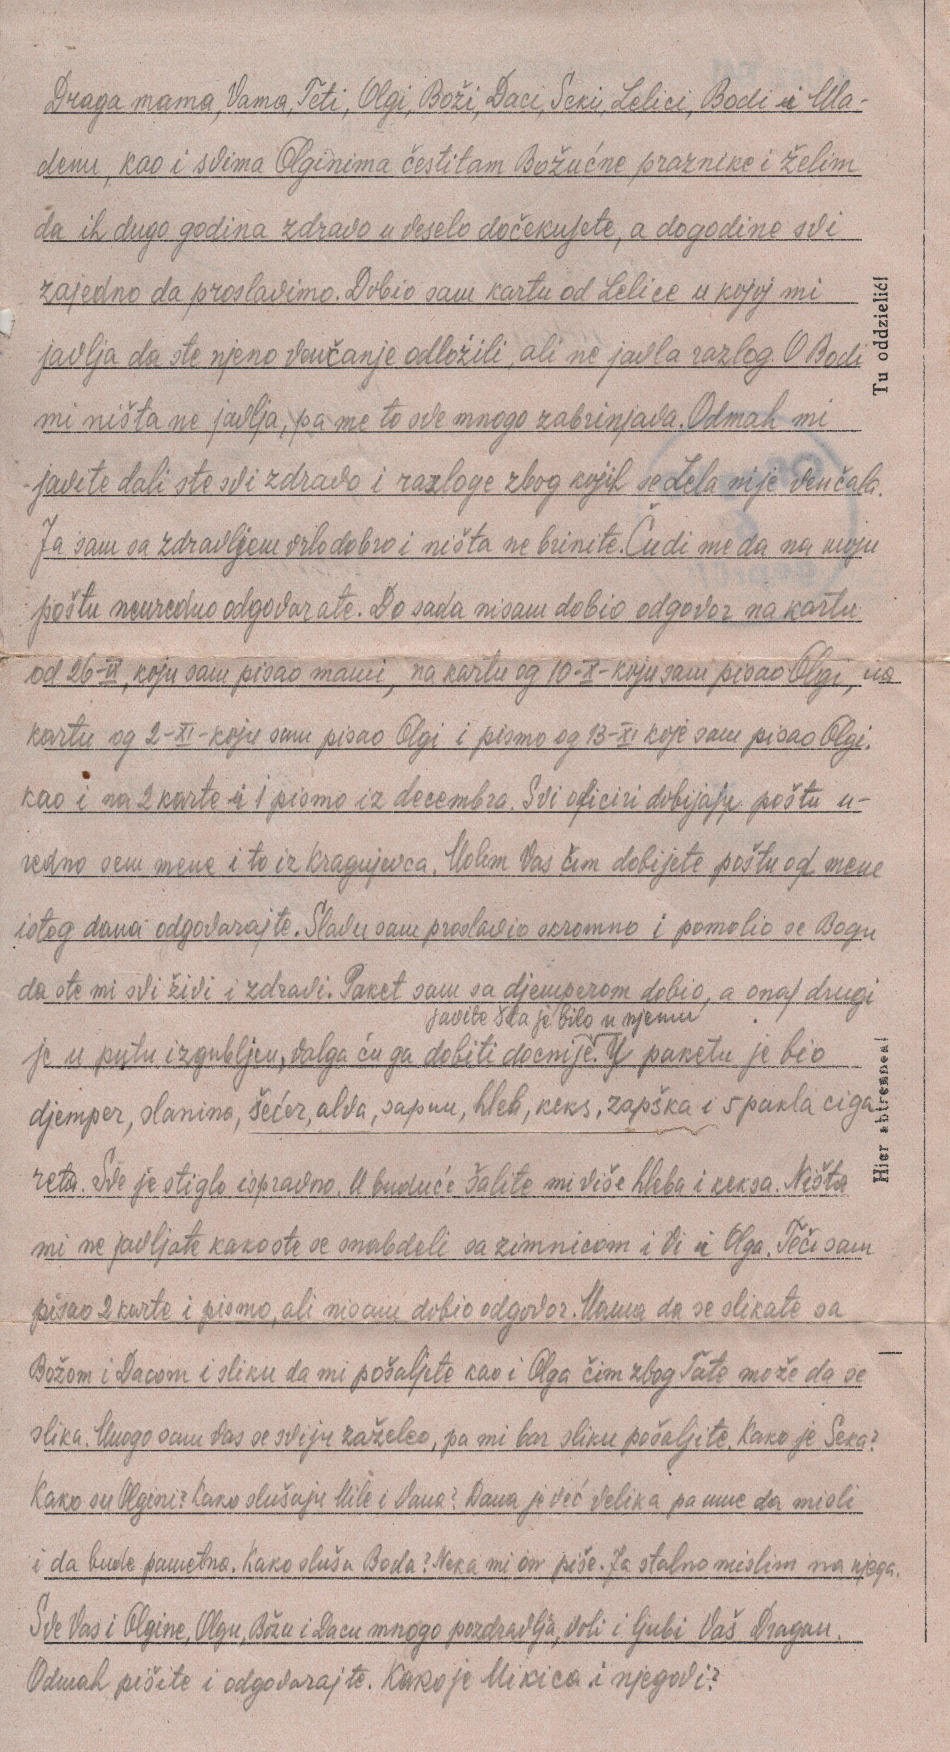 Draga mama, Vama, Teti, Olgi, Boži, Daci, Seki, Lelici, Bodi i Mla-
denu, kao i svima Olginima čestitam Božućne praznike i želim
da ih dugo godina zdravo u veselo dočekujete, a dogodine svi
zajedno da proslavimo. Dobio sam kartu od Lelice u kojoj mi
javlja da ste njeno venčanje odložili, ali ne javla razlog. O Bodi
mi ništa ne javlja, pa me to sve mnogo zabrinjava. Odmah mi
javite dali ste svi zdravo i razloge zbog kojih se Lela nije venčala.
Ja sam sa zdravljem vrlo dobro i ništa ne brinite. Čudi me da na moju
poštu neuredno odgovarate. Do sada nisam dobio odgovor na kartu
od 26-IX, koju sam pisao mami, na kartu og 10-X-koju sam pisao Olgi, na
kartu og 2-XI-koju sam pisao Olgi i pismo og 13-XI koje sam pisao Olgi,
kao i na 2 karte i 1 pismo iz decembra. Svi oficiri dobijaju poštu u-
redno sem mene i to iz Kragujevca. Molim Vas čim dobijete poštu od mene
istog dana odgovarajte. Slavu sam proslavio skromno i pomolio se Bogu
da ste mi svi živi i zdravi. Paket sam sa djemperom dobio, a onaj drugi
javite šta je bilo u njemu
je u putu izgubljen, valga ću ga dobiti docnije. U paketu je bio
djemper, slanina, šećer, alva, sapun, hleb, keks, zapška i 5 pakla ciga
reta. Sve je stiglo ispravno. U buduće šalite mi više hleba i keksa. Ništa
mi ne javljate kako ste se snabdeli sa zimnicom i Vi i Olga. Teči sam
pisao 2 karte i pismo, ali nisam dobio odgovor. Mama da se slikate sa
Božom i Dacom i sliku da mi pošaljete kao i Olga čim zbog Tate može da se
slika. Mnogo sam vas se sviju zaželeo, pa mi bar sliku pošaljite. Kako je Seka?
Kako su Olgini? Kako slušaju Mile i Vana? Dana je već velika pa ume da misli
i da bude pametna. Kako sluša Boda? Neka mi on piše. Ja stalno mislim na njega.
Sve Vas i Olgine, Olgu, Božu i Dacu mnogo pozdravlja, voli i ljubi Vaš Dragan.
Odmah pišite i odgovarajte. Kako je Mikica i njegovi?
Tu oddzielić!
Hier abtrennen!